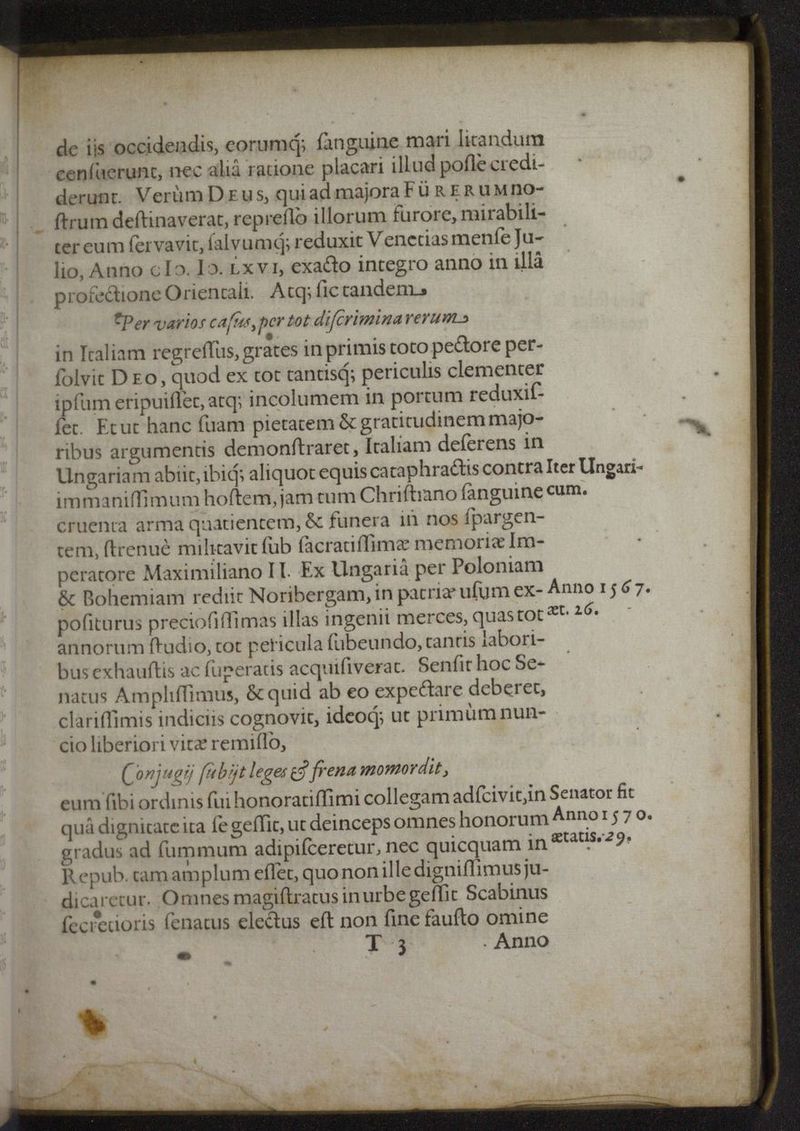 de iis occidendis, eorumq́; ſanguine mari litandum
cenſuerunt, nec aliâ ratione placari illud poſſe credi-
derunt. Verùm Deus, qui ad majora Fürerum no-
ſtrum deſtinaverat, repreſſo illorum furore, mirabili-
ter eum ſervavit, ſalvumq́; reduxit Venetias menſe Ju-
lio, Anno cIↃ. IↃ. LXVI, exacto integro anno in illâ
profectione Orientali. Atq; ſic tandem
Per varios caſus, per tot diſcrimina rerum
in Italiam regreſſus, grates in primis toto pectore per-
ſolvit Deo, quod ex tot tantisq́; periculis clementer
ipſum eripuiſſet, atq; incolumem in portum reduxiſ-
ſet. Et ut hanc ſuam pietatem & gratitudinem majo-
ribus argumentis demonſtraret, Italiam deſerens in
Ungariam abiit, ibiq́; aliquot equis cataphractis contra Iter Ungari-
immaniſſimum hoſtem, jam tum Chriſtiano ſanguine cum.
cruenta arma quatientem, & funera in nos ſpargen-
tem, ſtrenuè militavit ſub ſacratiſſimæ memoriæ Im-
peratore Maximiliano II. Ex Ungariâ per Poloniam
& Bohemiam rediit Noribergam, in patriæ uſum ex- Anno 1567.
poſiturus precioſiſſimas illas ingenii merces, quas tot æt. 26.
annorum ſtudio, tot pericula ſubeundo, tantis labori-
bus exhauſtis ac ſuperatis acquiſiverat. Senſit hoc Se-
natus Ampliſſimus, & quid ab eo expectare deberet,
clariſſimis indiciis cognovit, ideoq́; ut primùm nun-
cio liberiori vitæ remiſſo,
Conjugij ſubijt leges & frena momordit,
eum ſibi ordinis ſui honoratiſſimi collegam adſcivit, in Senator fit
quâ dignitate ita ſe geſſit, ut deinceps omnes honorum Anno 1570.
gradus ad ſummum adipiſceretur, nec quicquam in ætatis. 29.
Repub. tam amplum eſſet, quo non ille digniſſimus ju-
dicaretur. Omnes magiſtratus in urbe geſſit Scabinus
ſecretioris ſenatus electus eſt non ſine fauſto omine
T 3 Anno